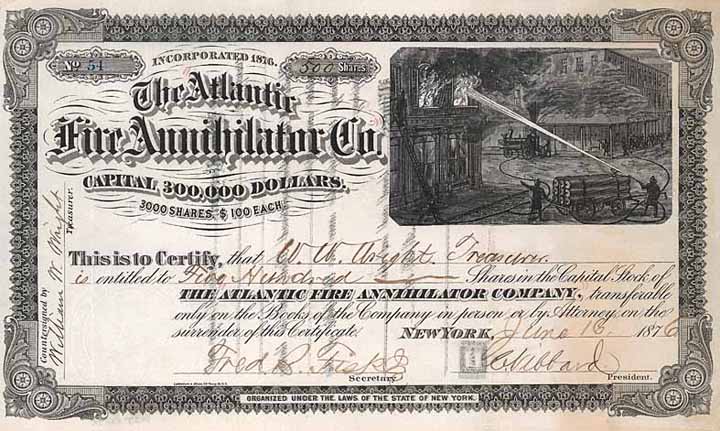 INCORPORATED 1876.
No 54
500 Shares
The Atlantic
Fire Annihilator Co.
CAPITAL 300,000 DOLLARS.
3000 SHARES, $100 EACH.
This is to Certify, that W. W. Wright, Treasurer
is entitled to Five Hundred Shares in the Capital Stock of
THE ATLANTIC FIRE ANNIHILATOR COMPANY, transferable
only on the Books of the Company in person or by Attorney on the
surrender of this Certificate.
NEW YORK, June 1876
Fred
Hibbard
Secretary
President.
Countersigned by
William W. Wright
Treasurer.
ORGANIZED UNDER THE LAWS OF THE STATE OF NEW YORK.